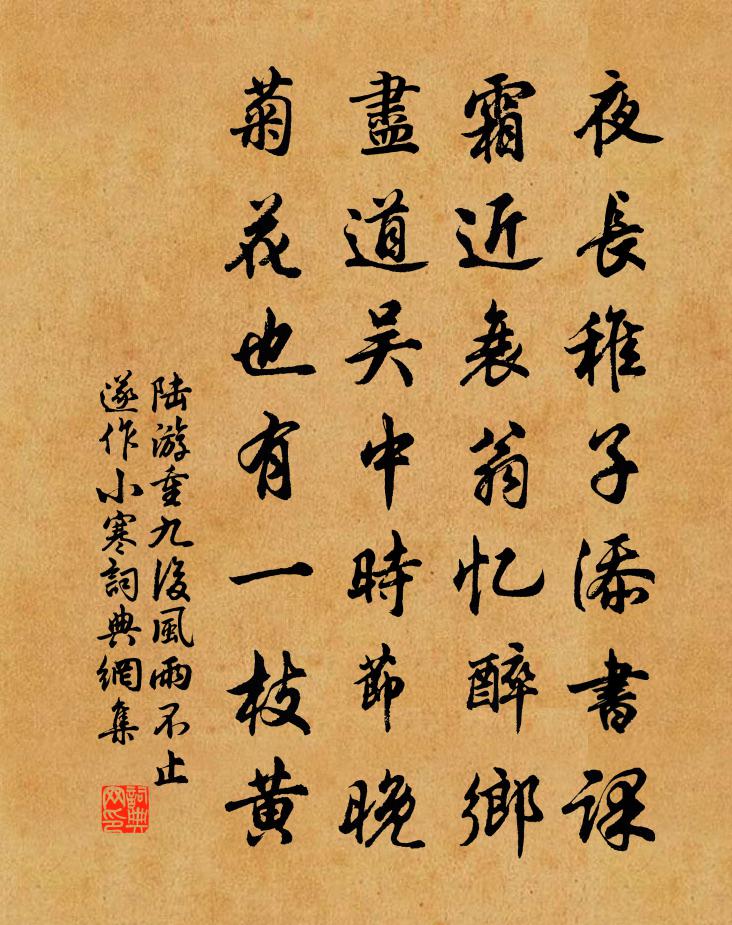 夜長稚子添書課
霜近衰翁忆醉鄉
盡道吴中時節晚
菊花也有一枝黄
陆游重九後風雨不止
遂作小寒詞典網集
詞典网印